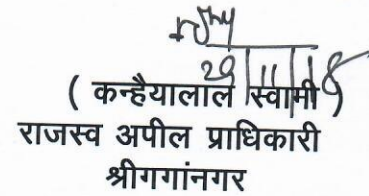 29/11/18
( कन्हैयालाल स्वामी )
राजस्व अपील प्राधिकारी
श्रीगगांनगर